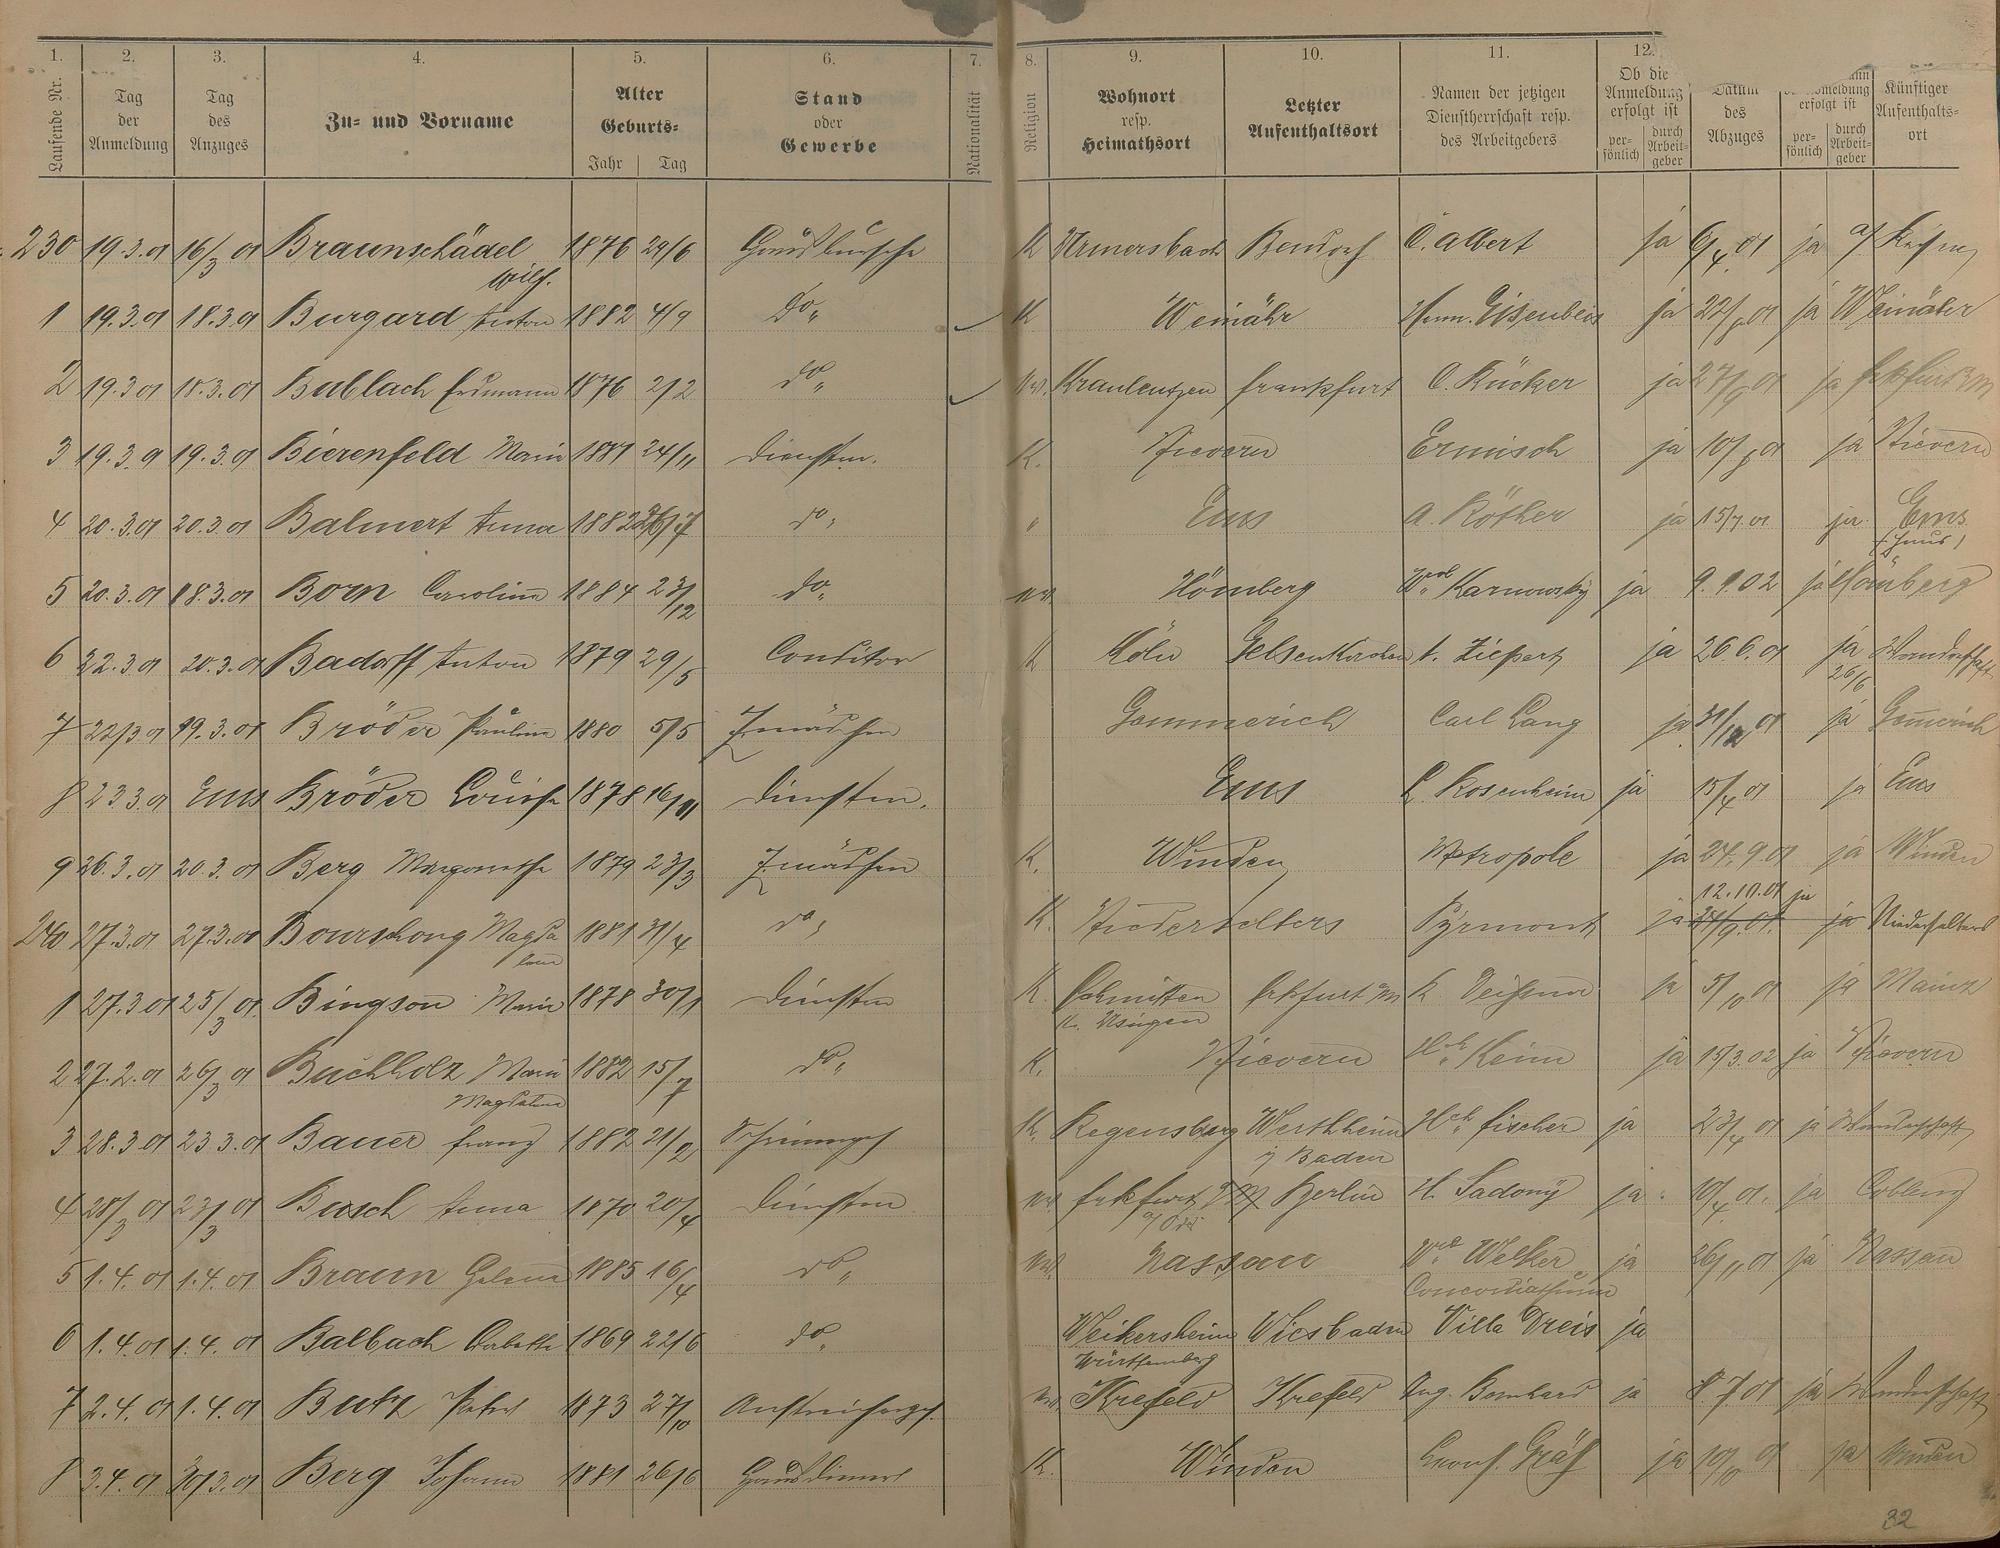 1. 2. 3. 4. 5. 6. 7. 8. 9. 10. 11. 12.
Laufende Nr. Tag der Anmeldung Tag des Anzuges Zu- und Vorname Alter Geburts- Jahr Tag Stand oder Gewerbe Nationalität Religion Wohnort resp. Heimathsort Letzter Aufenthaltsort Namen der jetzigen Dienstherrschaft resp. des Arbeitgebers Ob die Anmeldung erfolgt ist per- sönlich durch Arbeit- geber Datum des Abzuges erfolgt ist per- sönlich durch Arbeit- geber Künftiger Aufenthalts- ort
230 19.3.01 16/3 01 Braunschädel Wilh. 1876 29/6 Hausbursche K Urmersbach Bendorf C. Albert ja 6/4 01 ja
1 19.3.01 18.3.01 Burgard Anton 1882 4/9 do K Weinähr Herm. Eisenbeis ja 22/ 01 ja Weinähr
2 19.3.01 18.3.01 Bublach Erdmann 1876 2/2 do ev. Frankfurt C. Rücker ja 27/9 01 ja Frkfurt a/M
3 19.3.01 19.3.01 Bierenfeld Maria 1881 24/11 Dienstm. K. Nievern Ermisch ja 10/8 01 ja Nievern
4 20.3.01 20.3.01 Balmert Anna 1882 26/7 do " Ems A. Röther ja 15/7 01 ja Ems
5 20.3.01 18.3.01 Born Carolina 1884 23/12 do ev. Hömberg Wwe Karnowsky ja 9.1.02 ja Hömberg
6 22.3.01 20.3.01 Badorff Anton 1879 29/5 Conditor K Köln Gelsenkirchen A. Ziepert ja 26 6.01 ja 26/6 Wanderschaft
7 22/3 01 19.3.01 Bröder Pauline 1880 5/5 Z.mädchen Gemmerich Carl Lang ja 31/12 01 ja Gemmerich
8 23 3.01 Ems Bröder Louise 1878 16/11 Dienstm. Ems L. Rosenheim ja 15/4 01 ja Ems
9 26.3.01 20.3.01 Berg Margarethe 1879 23/3 Z.mädchen K. Winden Metropole ja 27.9.01 ja Winden
240 27.3.01 27.3.01 Bourschong Magdalena 1881 31/4 do K. Niederselters Pyrmont ja 24/9.01. 12.10.01 ja ja Niederselters
1 27.3 01 25/3 01 Bingson Maria 1878 30/1 Dienstm K. Schmitten Kr. Usingen Frkfurt a/M K ja 5/10 01 ja Mainz
2 27.2.01 26/3 01 Buchholz Maria Magdalena 1882 15/7 do K. Nievern Hch Keim ja 15/3.02 ja Nievern
3 28.3 01 23 3.01 Bauer Franz 1882 21/2 Schreinerges K. Regensburg Werthheim i/ Baden Hch Fischer ja 23/4 01 ja Wanderschaft
4 28/3 01 23/3 01 Busch Anna 1870 20/4 Dienstm ev Frkfurt a/Oder Berlin H. Sadony ja 10/4 01. ja Coblenz
5 1.4.01 1.4.01 Braun Helena 1885 16/4 do ev. Nassau Wwe Welker Concordiathurm ja 26/11 01 ja Nassau
6 1.4.01 1.4.01 Balbach Babette 1869 22/6 do Weikersheim Württemberg Wiesbaden Villa Dreis ja
7 2.4.01 1.4.01 Butz Peter 1873 27/10 Anstreicherges. ev. Krefeld Krefeld Aug. Bernhard ja 8 7 01 ja Wanderschaft
8 3.4.01 30/3.01 Berg Johann 1881 26/6 Hausdiener K. Winden Gräf ja 10/10 01 ja Winden
32